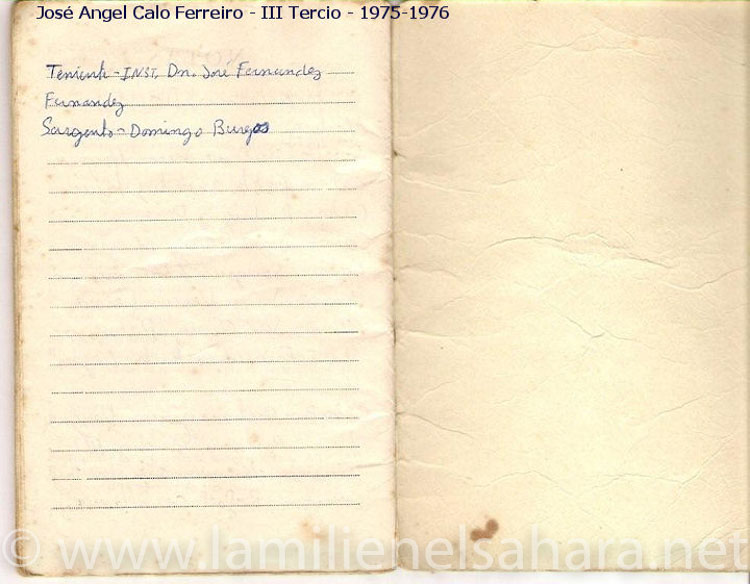 José Angel Calo Ferreiro - III Tercio - 1975-1976
Teniente - INST. Dn. José Fernandez
Fernandez
Sargento - Domingo Burgos
© www.lamilienelsahara.net